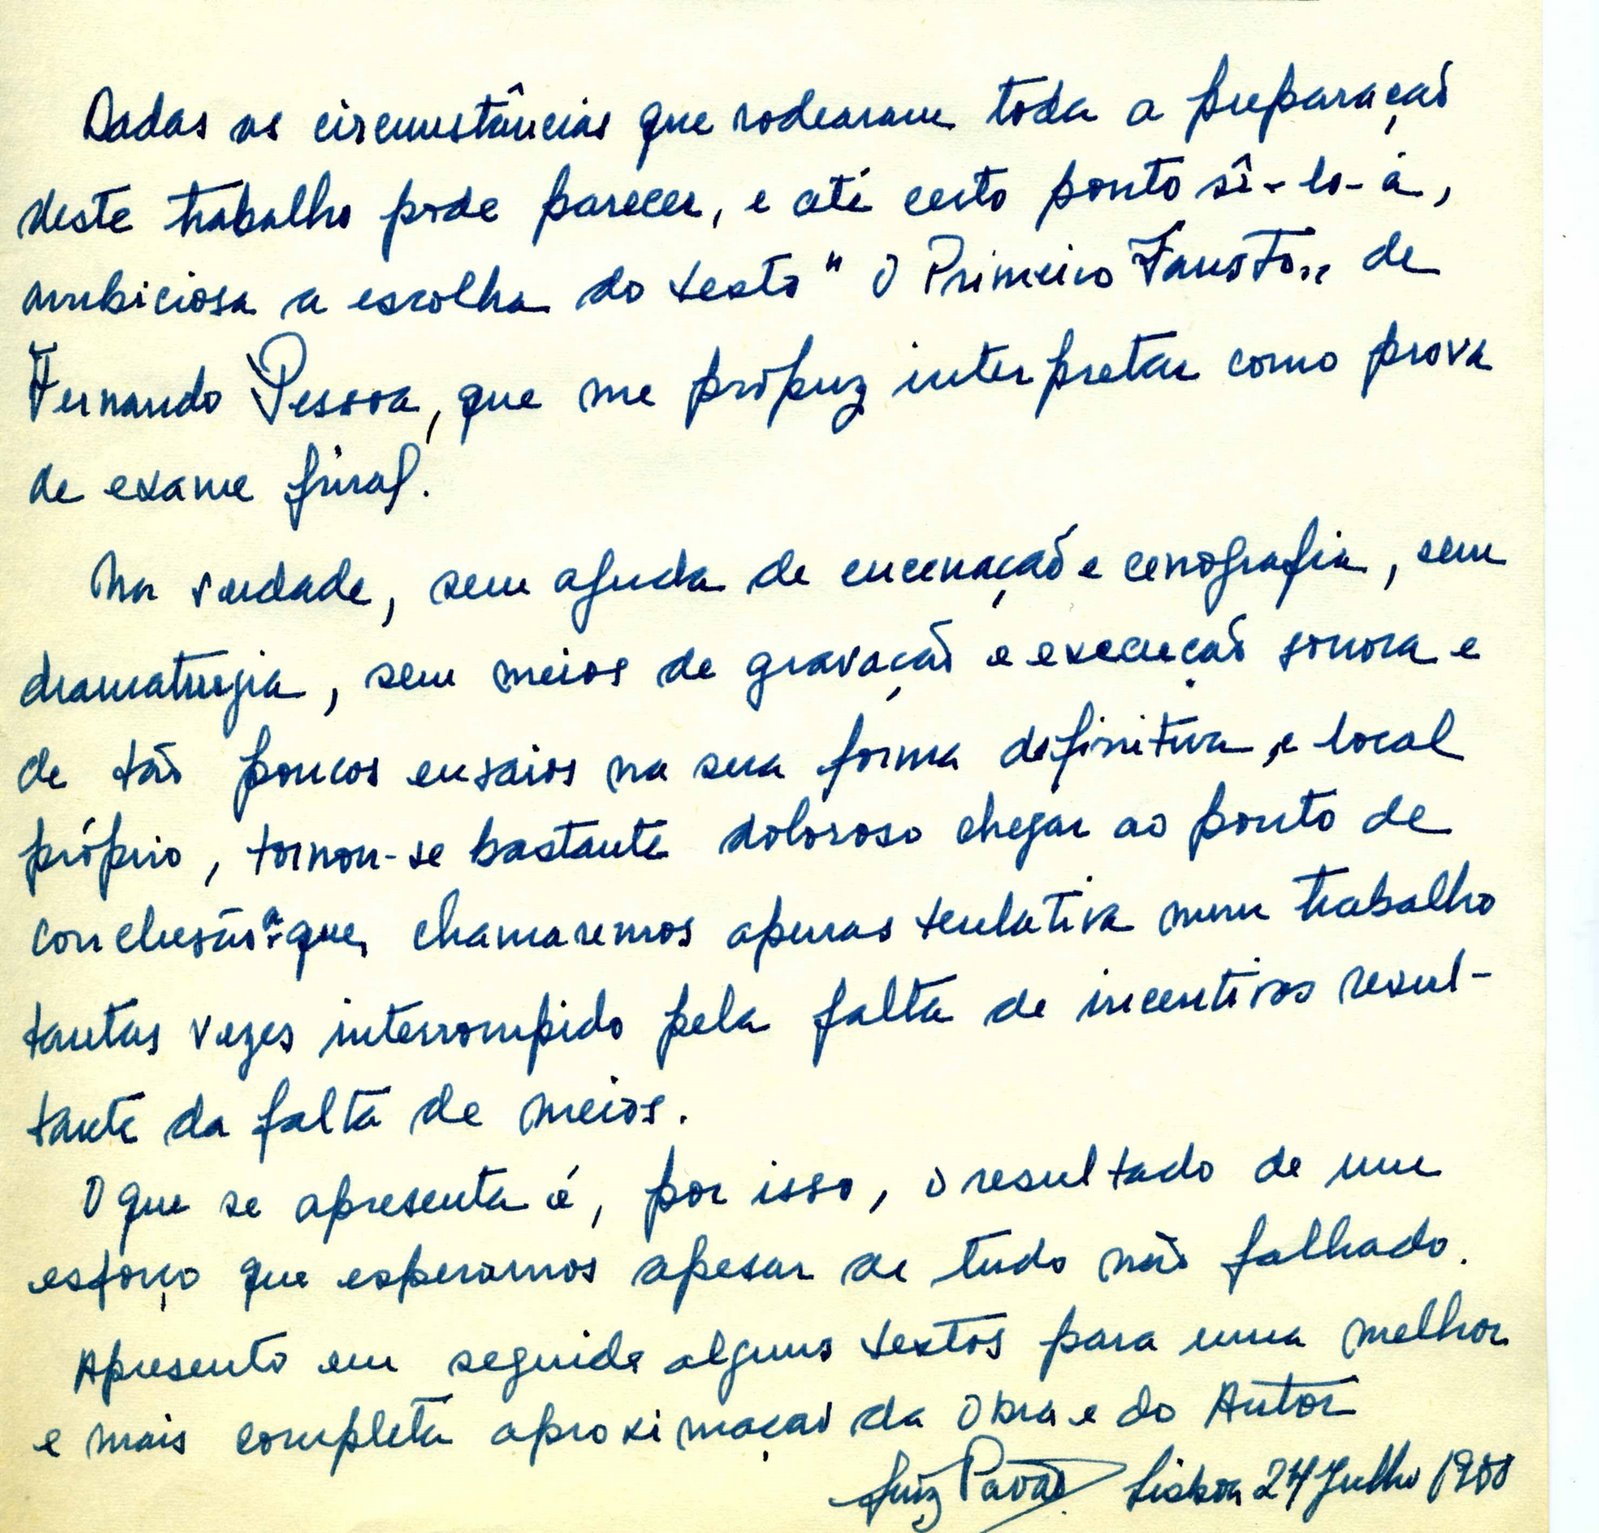 Dadas as circunstâncias que rodearam toda a preparação
deste trabalho pode parecer, e até certo ponto sê-lo-á,
ambiciosa a escolha do texto "O Primeiro Fausto„ de
Fernando Pessoa, que me propuz interpretar como prova
de exame final.
Na verdade, sem ajuda de encenação e cenografia, sem
dramaturgia, sem meios de gravação e execução sonora e
de tão poucos ensaios na sua forma definitiva, e local
próprio, tornou-se bastante doloroso chegar ao ponto de
conclusão a que chamaremos apenas tentativa num trabalho
tantas vezes interrompido pela falta de incentivos resul-
tante da falta de meios.
O que se apresenta é, por isso, o resultado de um
esforço que esperamos apesar de tudo não falhado.
Apresento em seguida alguns textos para uma melhor
e mais completa aproximação da Obra e do Autor
Luiz Pavão Lisboa 24 Julho